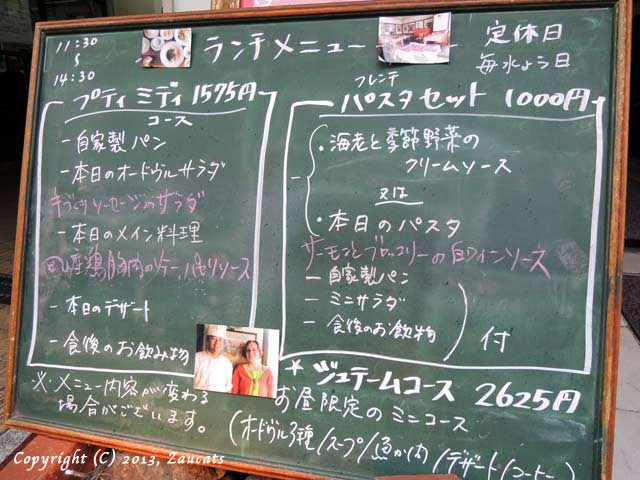 11:30
〜
14:30
ランチメニュー
定休日
毎水よう日
プティ ミディ 1575円
コース
- 自家製パン
- 本日のオードヴルサラダ
手づくりソーセージのサラダ
- 本日のメイン料理
鶏胸肉のソテー、パセリソース
- 本日のデザート
- 食後のお飲み物
※・メニュー内容が変わる
場合がございます。
フレンチ
パスタセット 1000円
・海老と季節野菜の
クリームソース
又は
・本日のパスタ
サーモンとブロッコリーの白ワインソース
- 自家製パン
- ミニサラダ
- 食後のお飲物
付
★ ジュテームコース 2625円
お昼限定のミニコース
(オードヴル3種/スープ/魚か肉/デザート/コーヒー)
Copyright (C) 2013, Zaucats